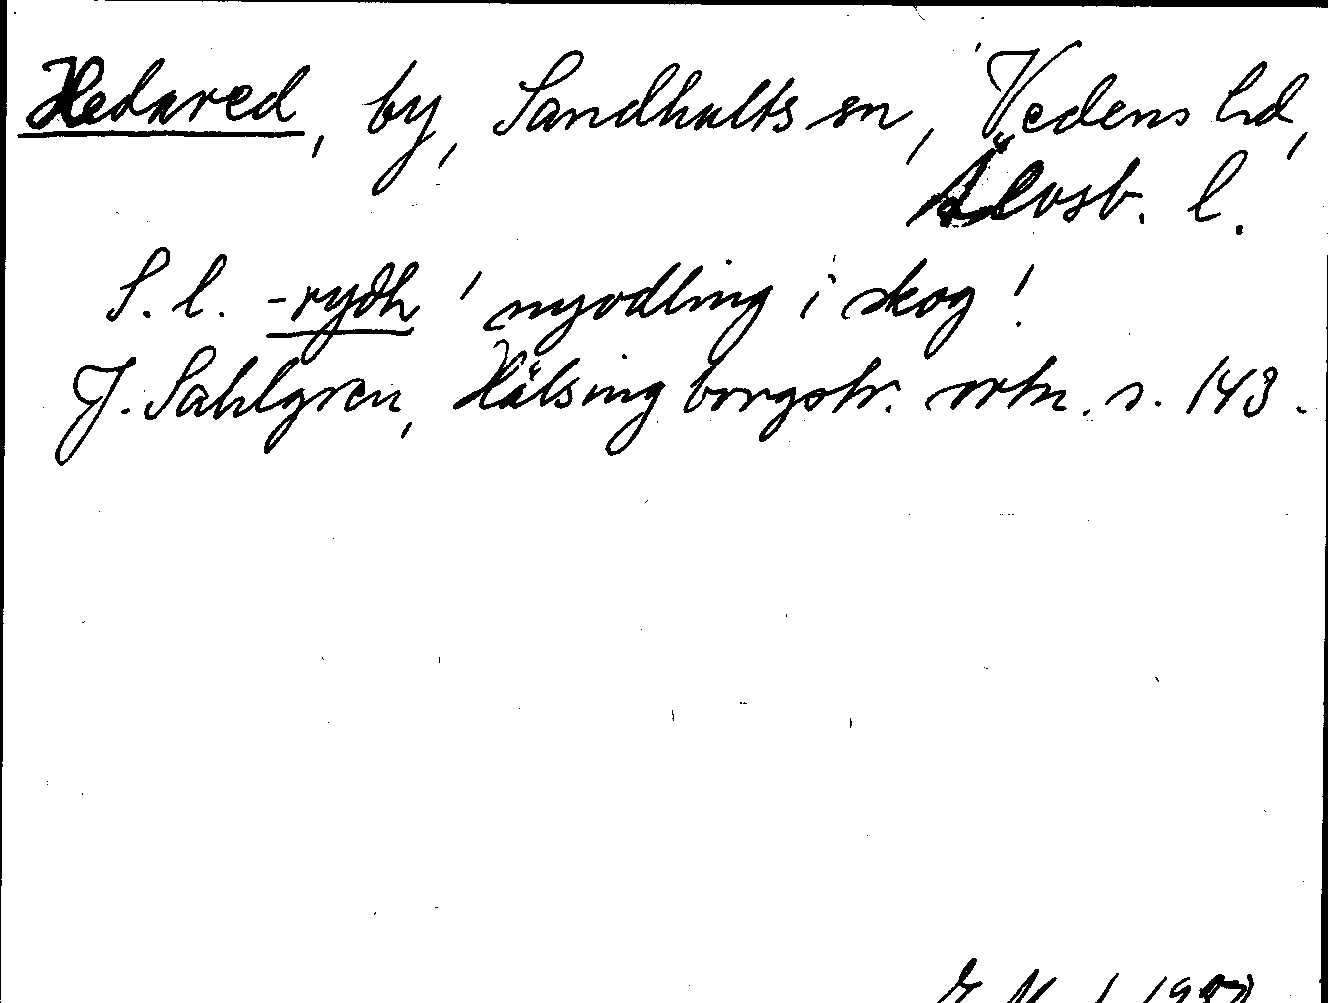 Hedared, by, Sandhults sn, Vedens hd,
Älvsb. l.
S. l. -rydh 'nyodling i skog'.
J. Sahlgren, Hälsingborgstr. ortn. s. 143.